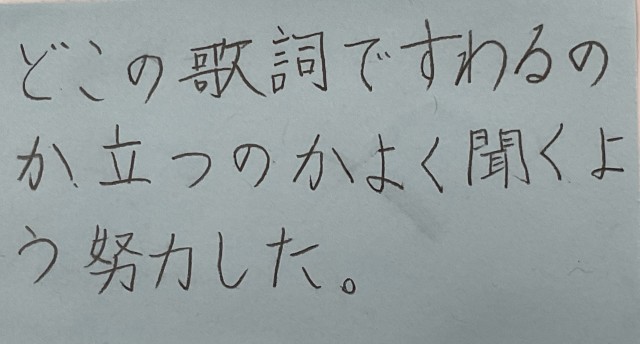 どこの歌詞ですわるの
か、立つのかよく聞くよ
う努力した。